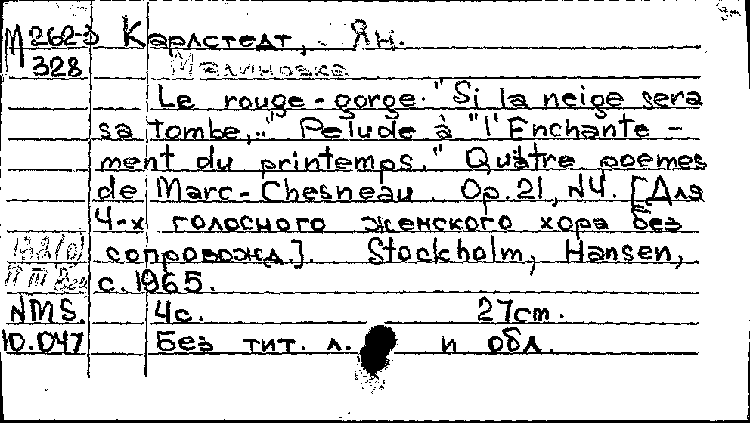 М 262-3 Карлстедт, Ян.
328 Малиновка
Le rouge-gorge. "Si la neige sera
sa tombe,.." Pelude à "l'Enchante-
ment du printemps." Quatre poemes
de Marc-Chesneau. Op. 21, N4. [Для
4-х голосного женского хора без
сопровожд.]. Stockholm, Hansen,
с. 1965.
NMS. 4с. 27cm.
10.047 Без тит. л. и обл.